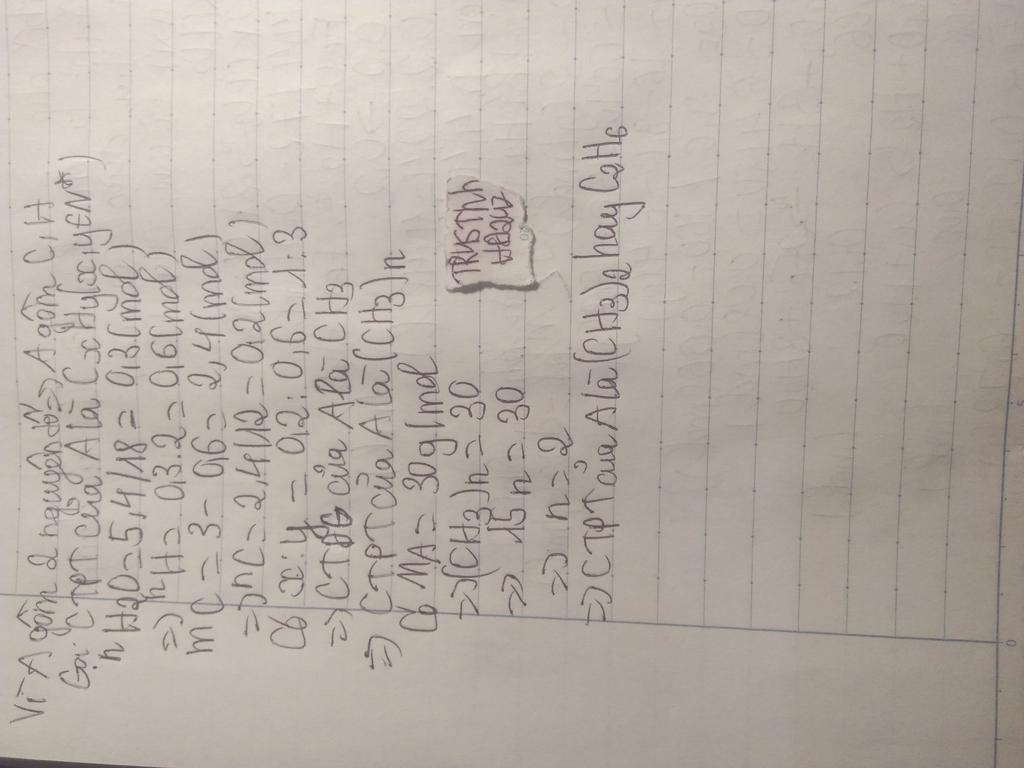 Vì A gồm 2 nguyên tố => A gồm C, H
Gọi: CTPT của A là CxHy (x, y ∈ N*)
nH2O = 5,4/18 = 0,3 (mol)
=> nH = 0,3.2 = 0,6 (mol)
mC = 3 - 0,6 = 2,4 (mol)
=> nC = 2,4/12 = 0,2 (mol)
Có x:y = 0,2:0,6 = 1:3
=> CT của A là CH3
=> CTPT của A là (CH3)n
Có MA = 30g/mol
=> (CH3)n = 30
=> 15n = 30
=> n = 2
=> CTPT của A là (CH3)2 hay C2H6